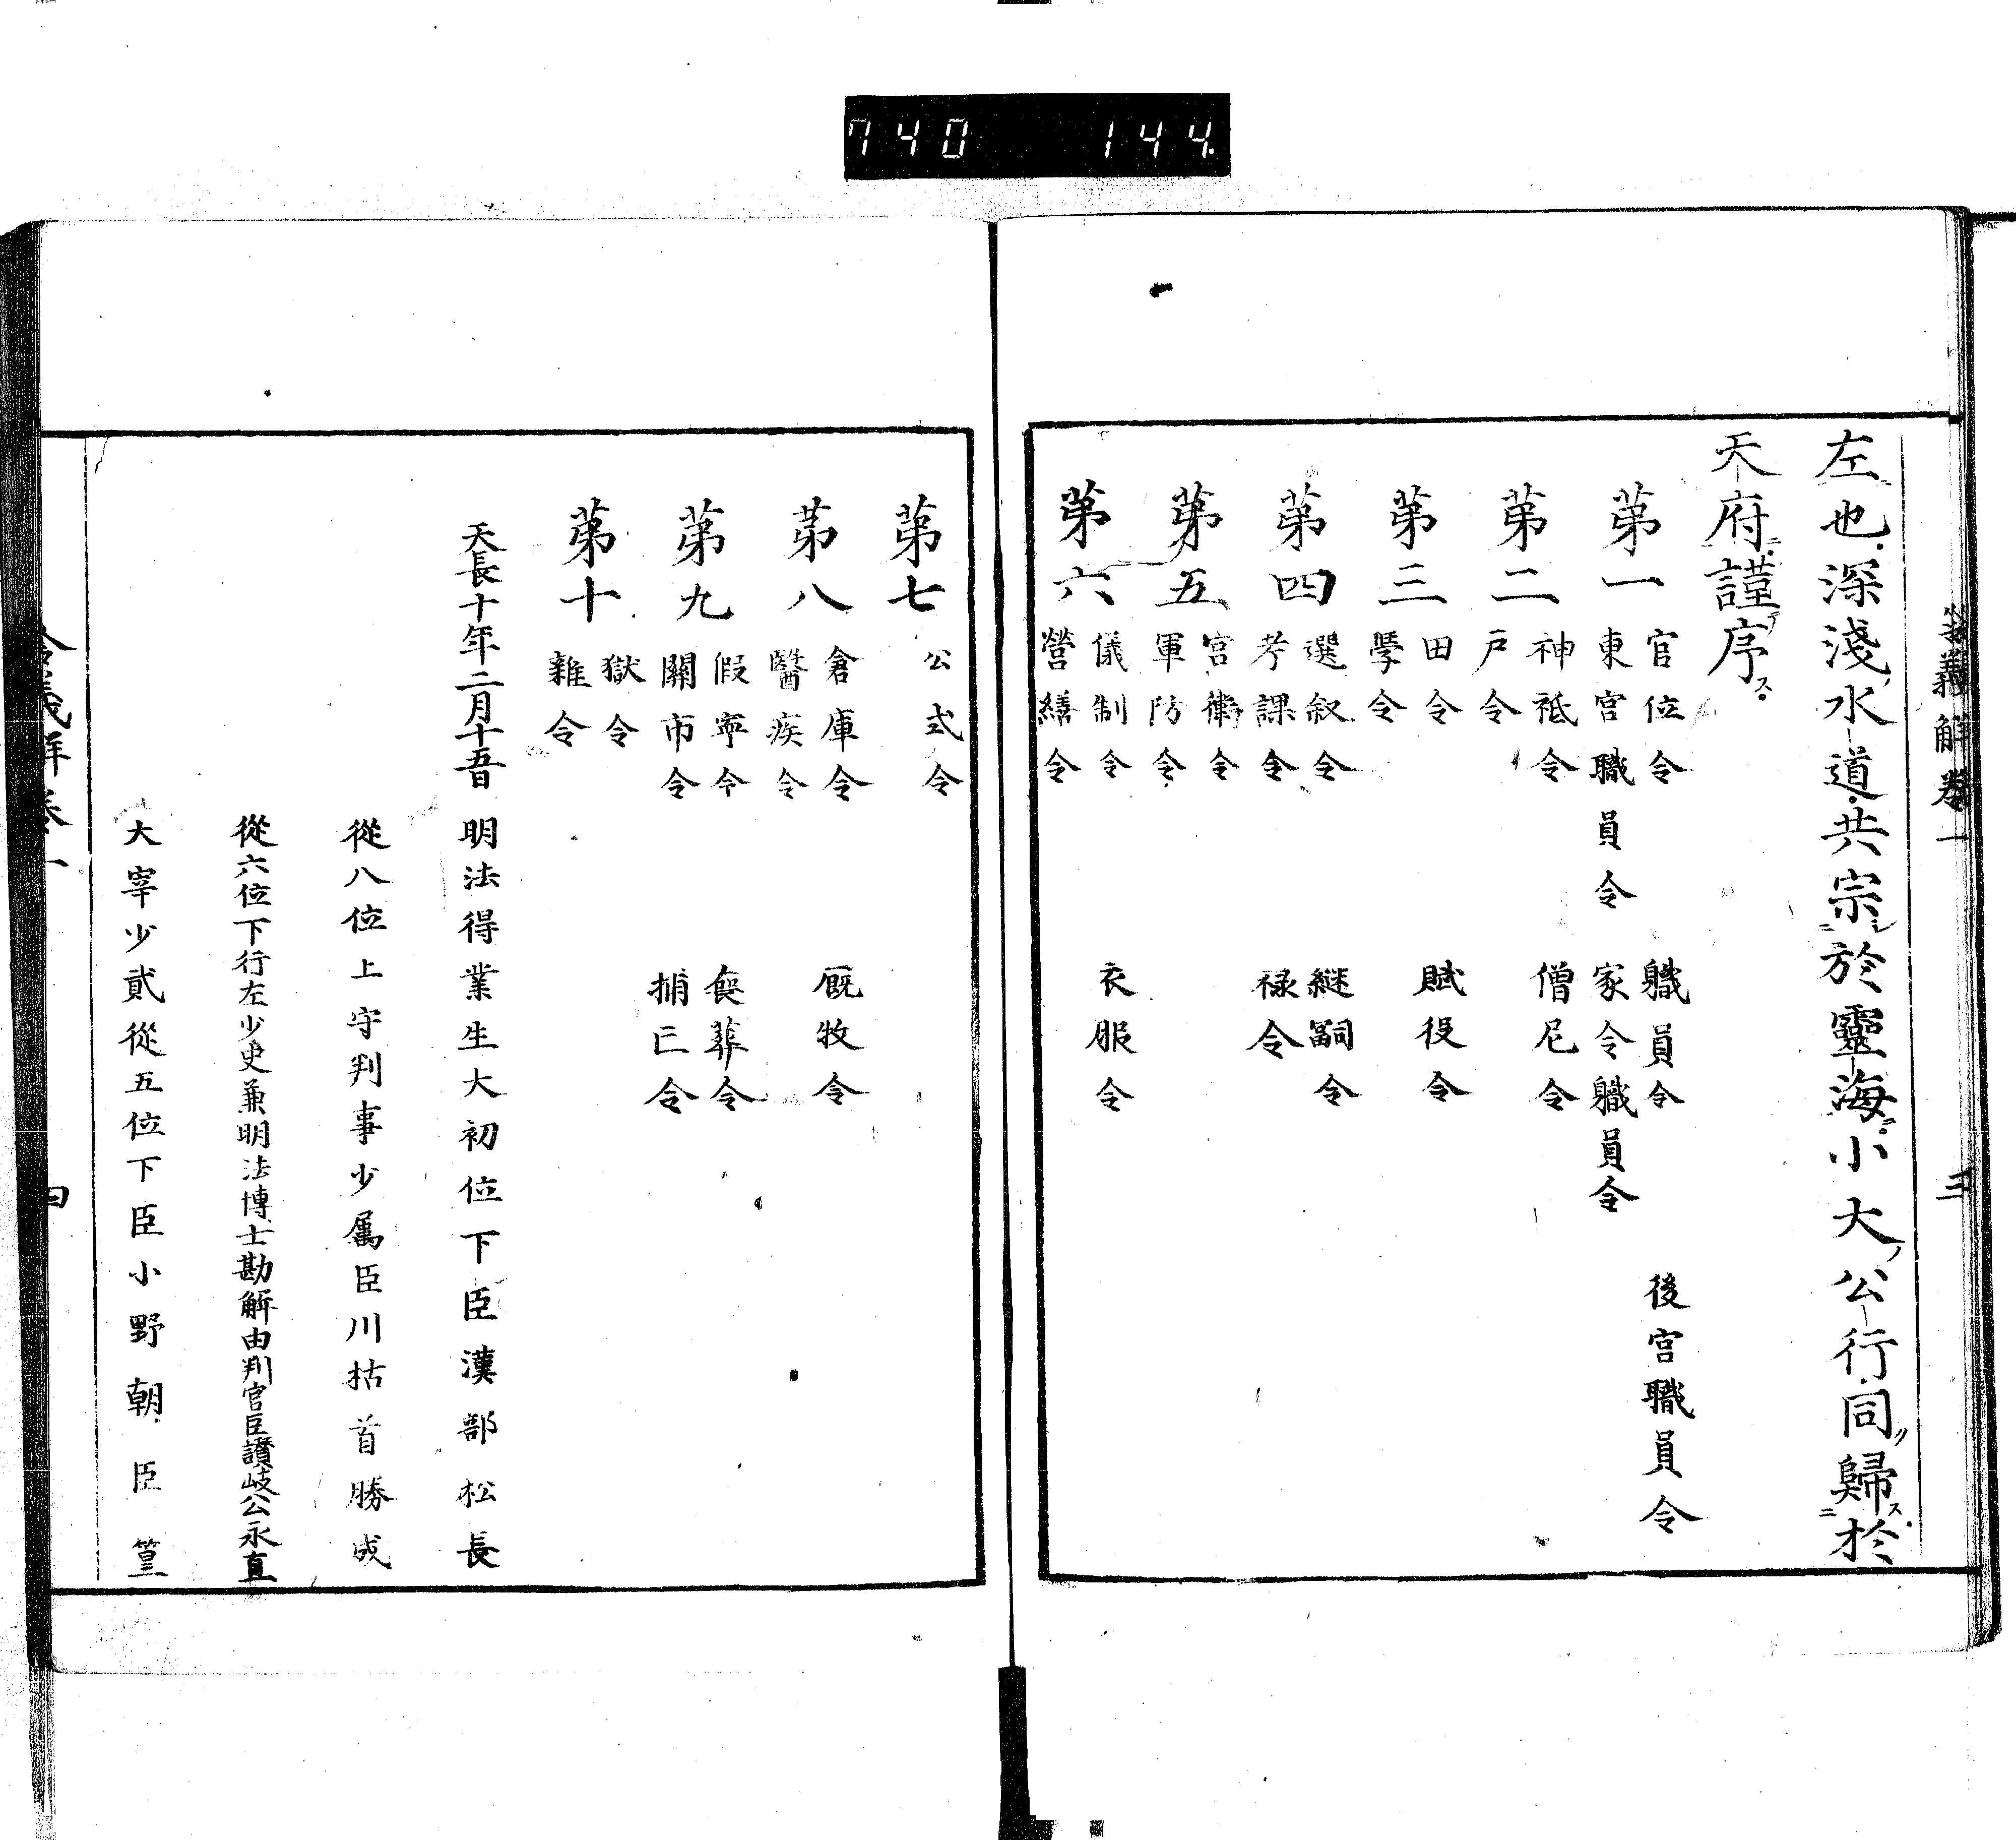 740 144
令義解卷一 三
左也深淺水道共宗於靈海小大公行同歸於
天府謹序
第一 官位令 職員令 後宮職員令
東宮職員令 家令職員令
第二 神祗令 僧尼令
戶令
第三 田令 賦役令
學令
第四 選叙令 継嗣令
考課令 禄令
第五 宮衛令
軍防令
第六 儀制令 衣服令
營繕令
第七 公式令
第八 倉庫令 厩牧令
醫疾令
第九 假寧令 喪葬令
關市令 捕亡令
第十 獄令
雜令
天長十年二月十五日 明法得業生大初位下臣漢部松長
從八位上守判事少属臣川枯首勝成
從六位下行左少史兼明法博士勘解由判官臣讃岐公永直
大宰少貳從五位下臣小野朝臣篁
令義解卷一 四